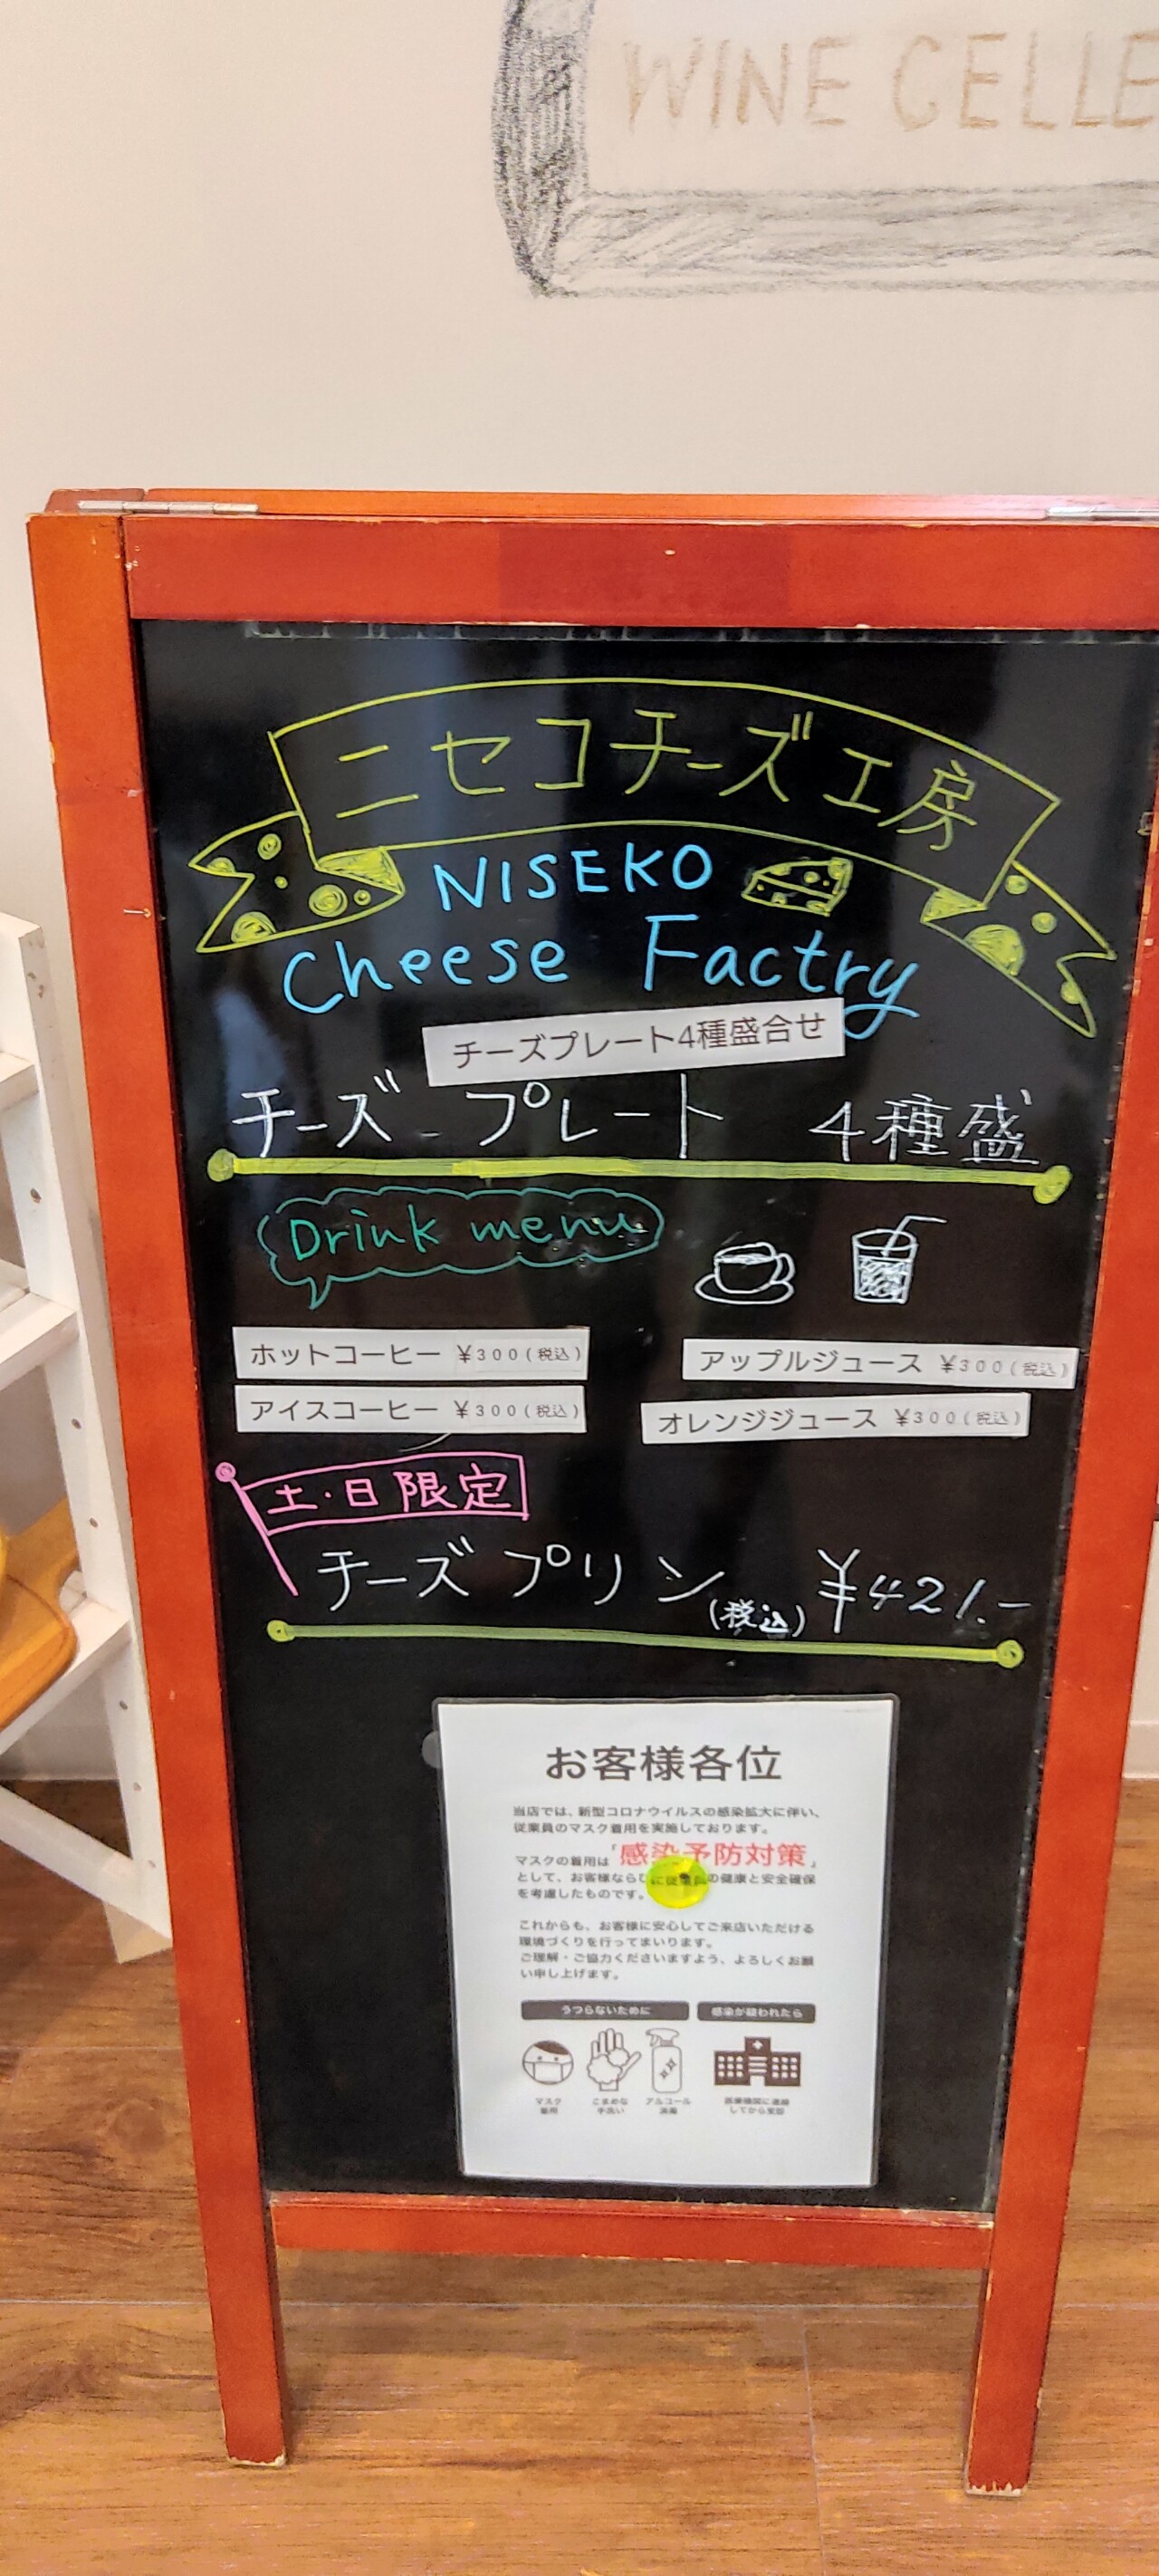 WINE CELLE
ニセコチーズ工房
NISEKO
Cheese Factry
チーズプレート4種盛合せ
チーズ プレート 4種盛
Drink menu
ホットコーヒー ¥300(税込)
アップルジュース ¥300(税込)
アイスコーヒー ¥300(税込)
オレンジジュース ¥300(税込)
土・日限定
チーズプリン(税込) ¥421.-
お客様各位
当店では、新型コロナウイルスの感染拡大に伴い、
従業員のマスク着用を実施しております。
マスクの着用は「感染予防対策」
として、お客様ならびに従業員の健康と安全確保
を考慮したものです。
これからも、お客様に安心してご来店いただける
環境づくりを行ってまいります。
ご理解・ご協力くださいますよう、よろしくお願
い申し上げます。
うつらないために
感染が疑われたら
マスク
着用
こまめな
手洗い
アルコール
消毒
医療機関に連絡
してから受診